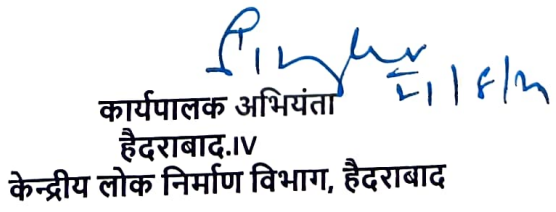 कार्यपालक अभियंता
हैदराबाद.IV
केन्द्रीय लोक निर्माण विभाग, हैदराबाद